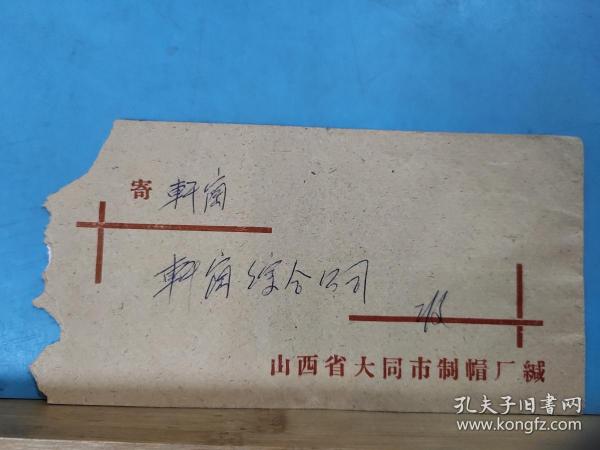 寄 軒崗
軒崗综合公司
收
山西省大同市制帽厂缄
孔夫子旧书网
www.kongfz.com